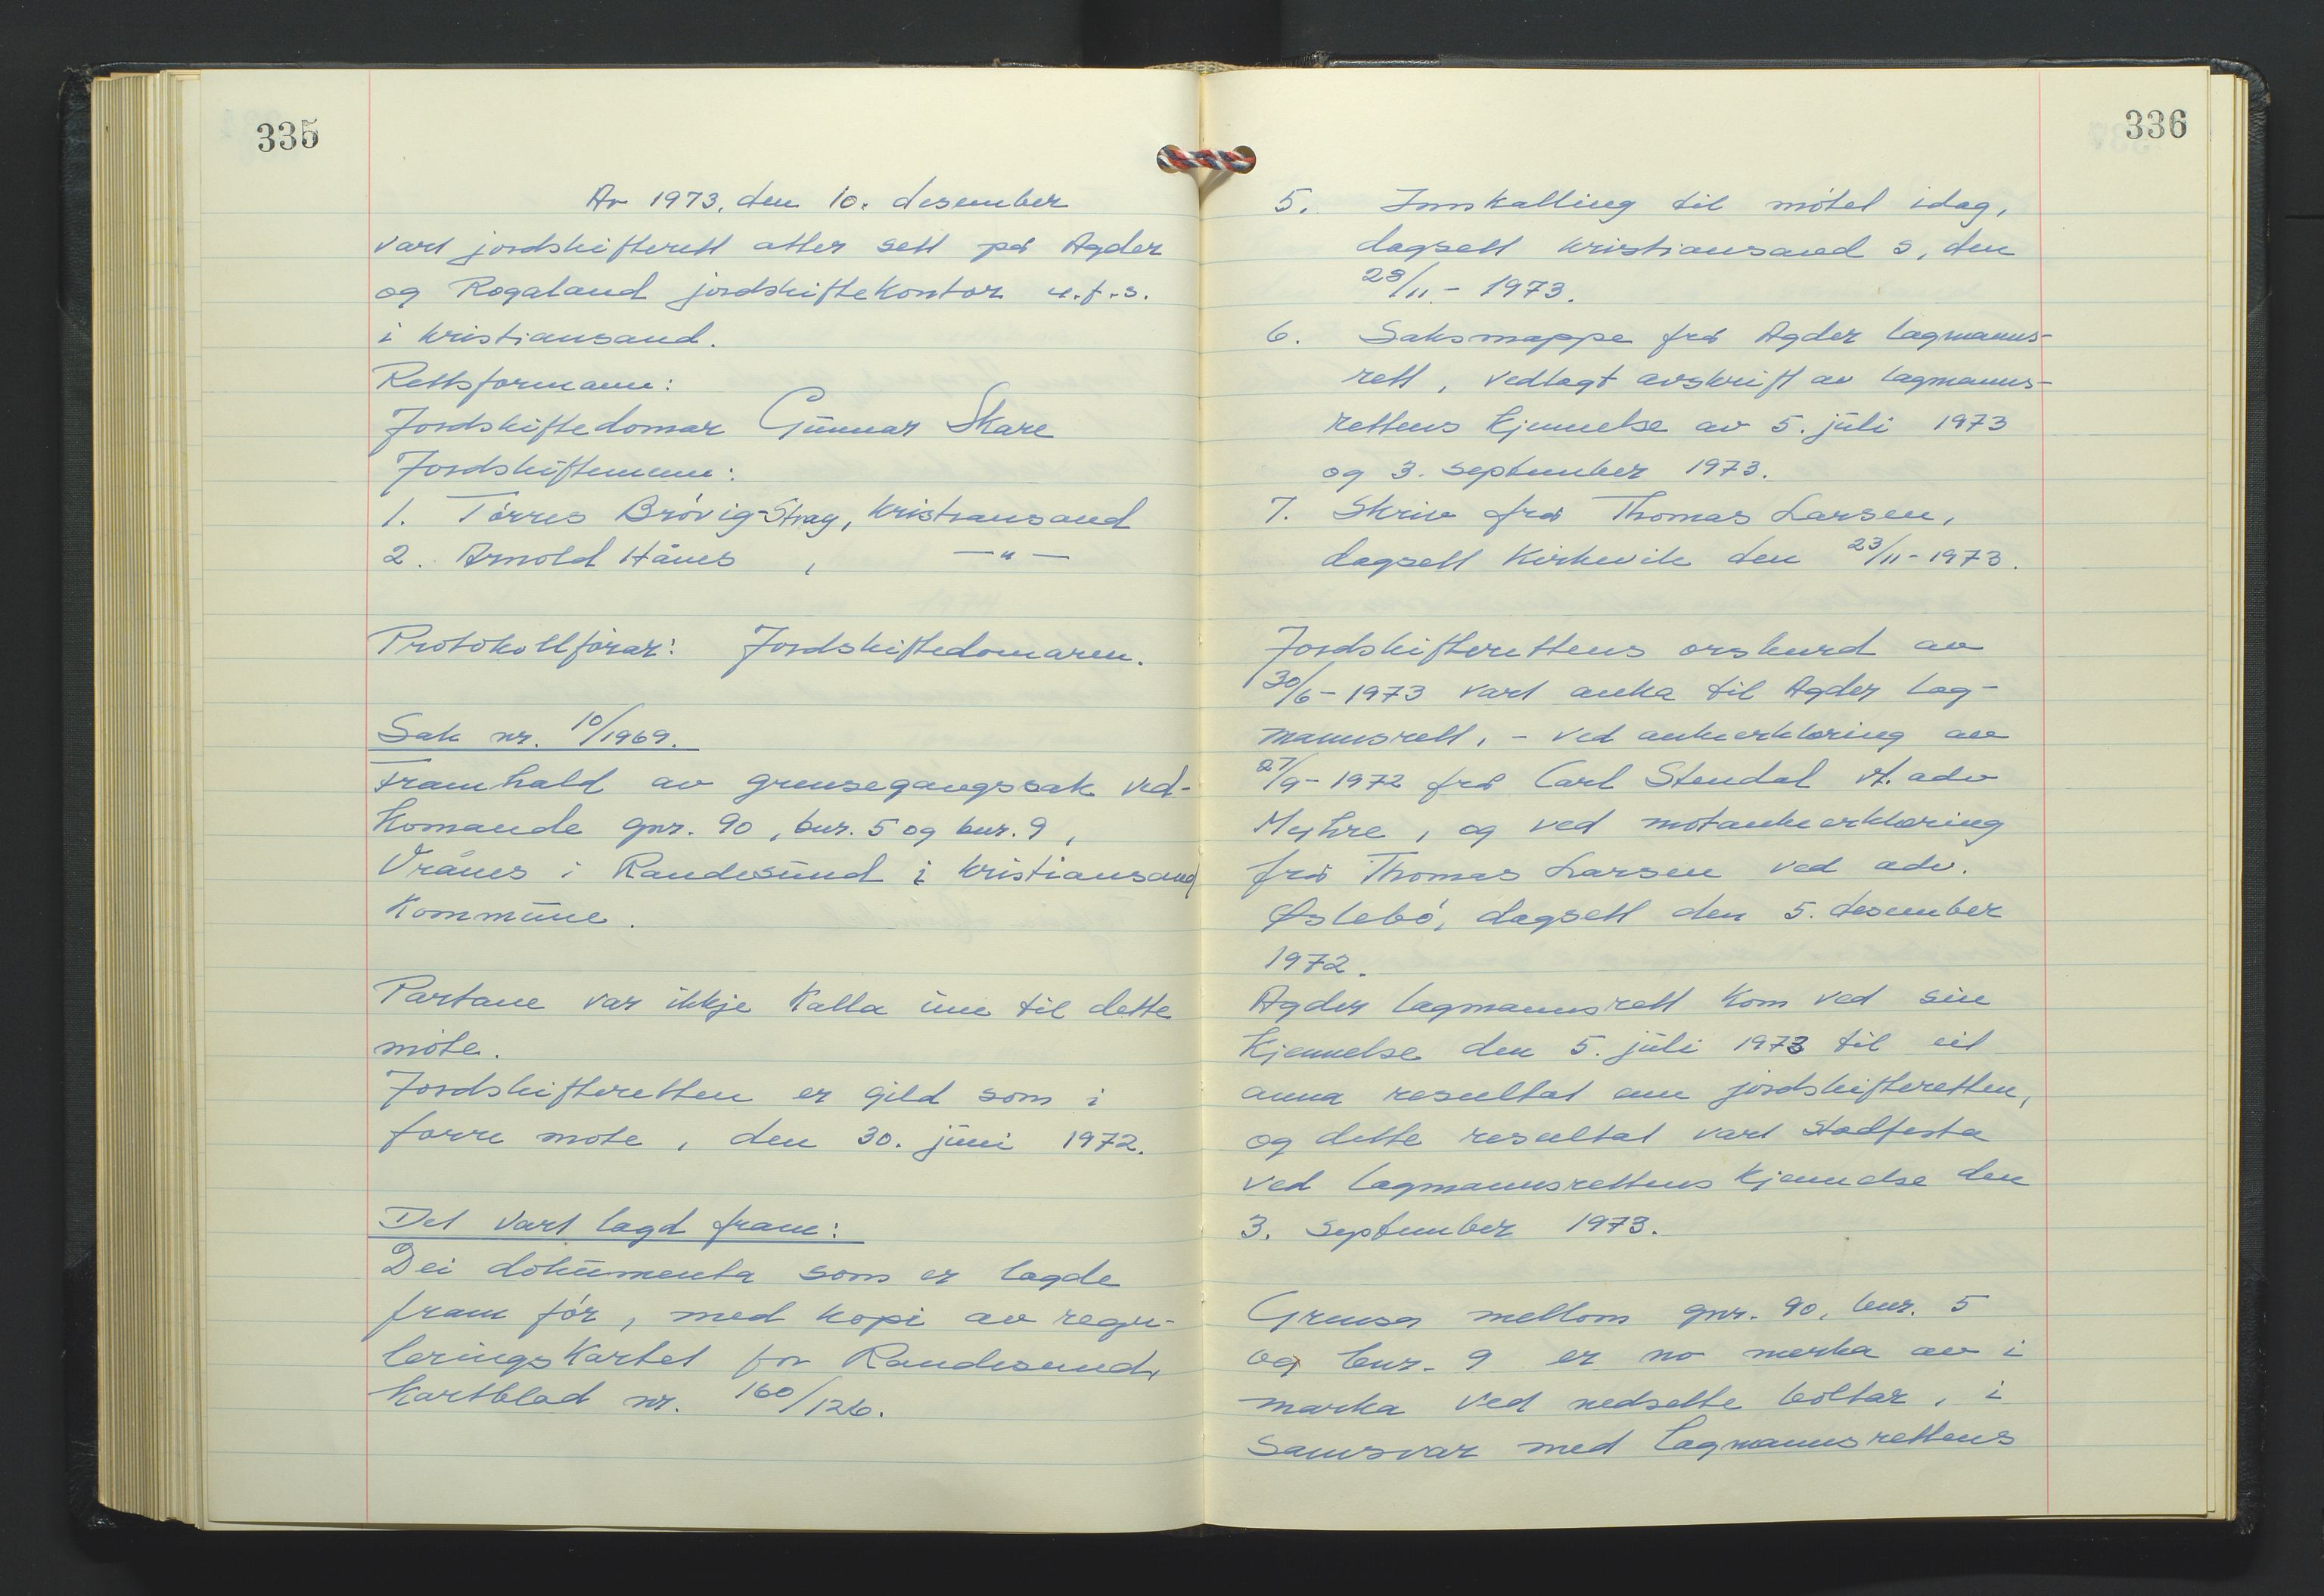 335
År 1973, den 10. desember
vart jordskifterett atter sett på Agder
og Rogaland jordskiftekontor u.t.s.
i Kristiansand.
Rettsformann:
Jordskiftedomar Gunnar Skare
Jordskiftemenn:
1. Tørres Brøvig-Strag, Kristiansand
2. Arnold Hånes , — " —
Protokollførar: Jordskiftedomaren.
Sak nr. 10/1969.
Framhald av grensegangssak ved-
komande gnr. 90, bnr. 5 og bnr. 9,
Vrånes i Randesund i Kristiansand
kommune.
Partane var ikkje kalla inn til dette
møte.
Jordskifteretten er gild som i
førre møte, den 30. juni 1972.
Det vart lagd fram:
Dei dokumenta som er lagde
fram før, med kopi av regu-
leringskartet for Randesund,
kartblad nr. 160/126.
336
5. Innkalling til møtet idag,
dagsett Kristiansand S, den
28/11-1973.
6. Saksmappe frå Agder lagmanns-
rett, vedlagt avskrift av lagmanns-
rettens kjennelse av 5. juli 1973
og 3. september 1973.
7. Skriv frå Thomas Larsen,
dagsett Kirkevik den 23/11-1973.
Jordskifterettens orskurd av
30/6-1973 vart anka til Agder lag-
mannsrett, - ved ankeerklæring av
27/9-1972 frå Carl Stendal v. adv
Myhre, og ved motankeerklæring
frå Thomas Larsen ved adv.
Øslebø, dagsett den 5. desember
1972.
Agder lagmannsrett kom ved sin
kjennelse den 5. juli 1973 til eit
anna resultat enn jordskifteretten,
og dette resultat vart stadfesta
ved lagmannsrettens kjennelse den
3. september 1973.
Grensa mellom gnr. 90, bnr. 5
og bnr. 9 er no merka av i
marka ved nedsette boltar, i
samsvar med lagmannsrettens